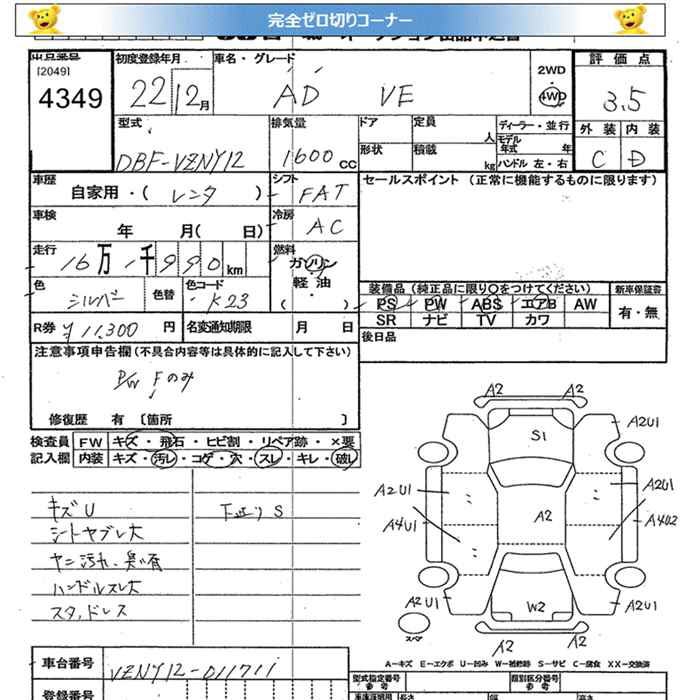 完全ゼロ切りコーナー
出品番号 初度登録年月 車名・グレード 評価点
[2049]
4349 22 12月 AD VE 2WD 4WD 3.5
型式 排気量 ドア 定員 人 ディーラー・並行 外装 内装
モデル年式 年
DBF-VZNY12 1600cc 形状 積載 kg ハンドル 左・右 C D
車歴 自家用・( レンタ ) シフト FAT セールスポイント (正常に機能するものに限ります)
車検 年 月( 日) 冷房 AC
走行 16万1千990km 燃料 ガソリン・軽油・( )
色 シルバー 色替 色コード K23
装備品 (純正品に限り〇をつけてください) 新車保証書
PS PW ABS エアB AW 有・無
SR ナビ TV カワ
R券 ¥11,300円 名変通知期限 月 日 後日品
注意事項申告欄 (不具合内容等は具体的に記入して下さい)
P/W Fのみ
修復歴 有 〔箇所 〕
検査員 FW キズ・飛石・ヒビ割・リペア跡・×要
記入欄 内装 キズ・汚レ・コゲ・穴・スレ・キレ・破レ
キズU 下廻りS
シートヤブレ大
ヤニ汚れ、臭い有
ハンドルスレ大
スタッドレス
A2 A2
S1
A2U1
A2U1 A2U1
A2
A4U1 A4U2
A2U1 A2U1
W2
スペア
A2 A2
A-キズ E-エクボ U-凹み W-補修跡 S-サビ C-腐食 XX-交換済
車台番号 VZNY12-011711
型式指定番号 類別区分番号
参考 参考
登録番号 長さ 幅 高さ